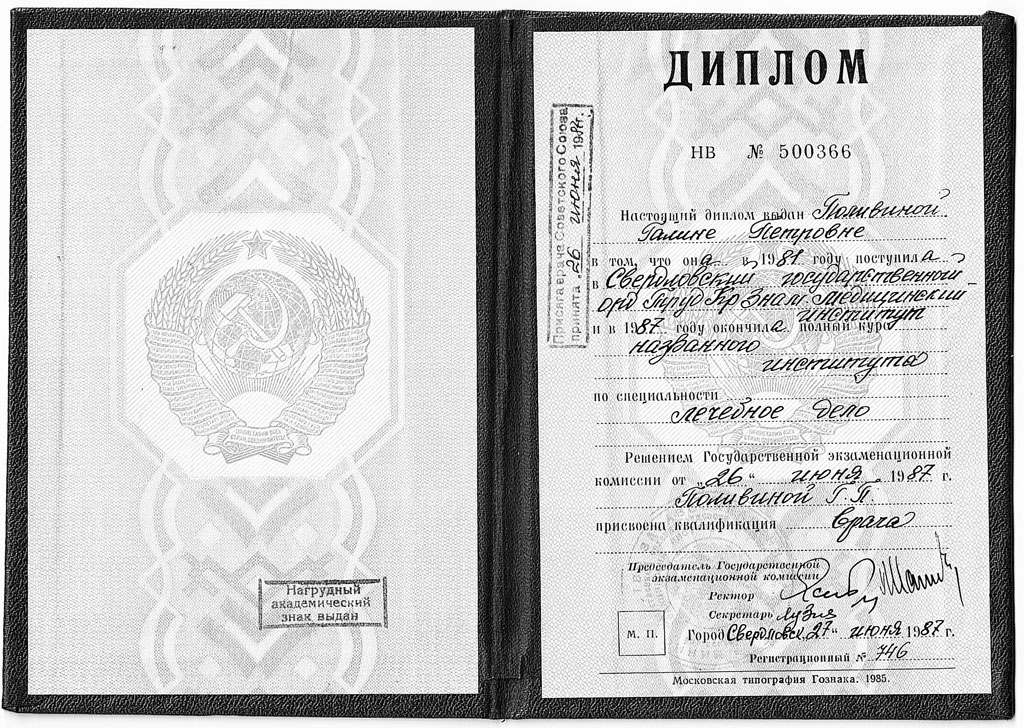 Нагрудный
академический
знак выдан
ДИПЛОМ
НВ № 500366
Присяга врача Советского Союза
принята „26 июня 1987г.
Настоящий диплом выдан Поливиной
Галине Петровне
в том, что она в 1981 году поступила
в Свердловский государственный
орд. Труд. Кр. Знам. медицинский
институт
и в 1987 году окончила полный курс
названного
института
по специальности
лечебное дело
Решением Государственной экзаменационной
комиссии от „26“ июня 1987 г.
Поливиной Г. П.
присвоена квалификация врача
Председатель Государственной
экзаменационной комиссии
Ректор
Секретарь
М. П.
Город Свердловск, 27“ июня 1987 г.
Регистрационный № 746
Московская типография Гознака. 1985.